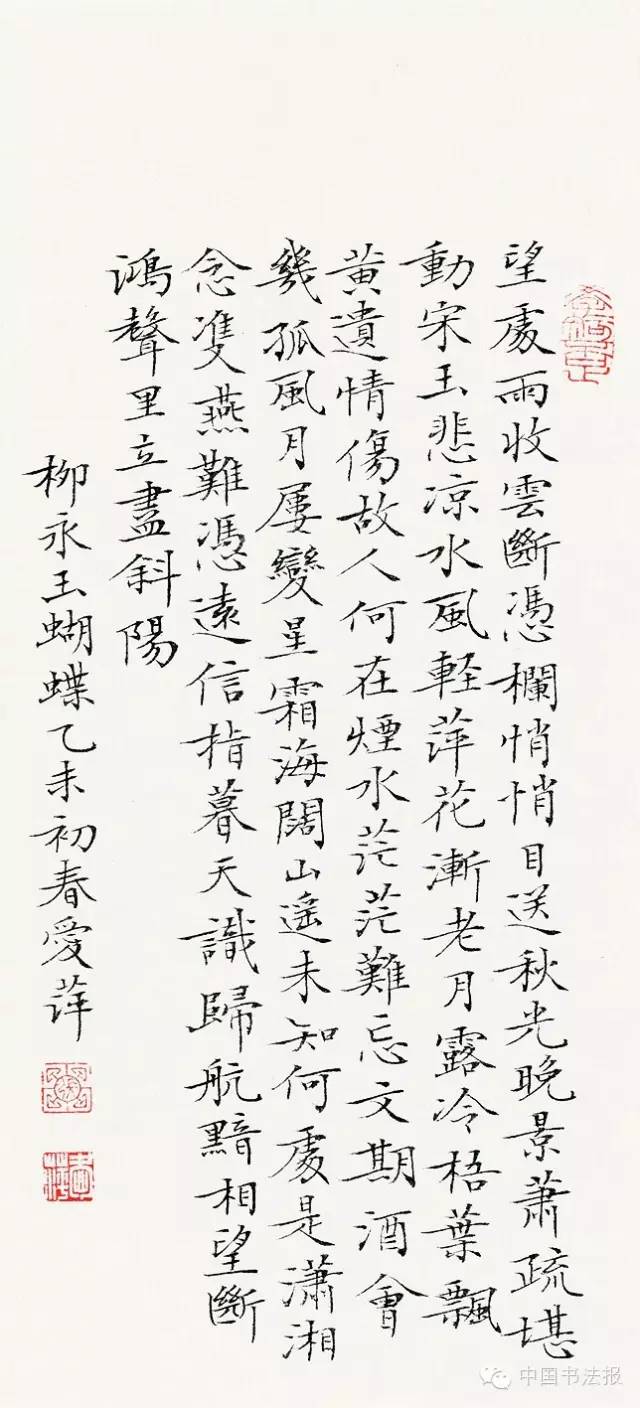 望處雨收雲斷憑欄悄悄目送秋光晚景蕭疏堪
動宋玉悲凉水風輕萍花漸老月露冷梧葉飄
黃遺情傷故人何在煙水茫茫難忘文期酒會
幾孤風月屢變星霜海闊山遥未知何處是瀟湘
念雙燕難憑遠信指暮天識歸航黯相望斷
鴻聲里立盡斜陽
柳永玉蝴蝶乙未初春愛萍
中国书法报